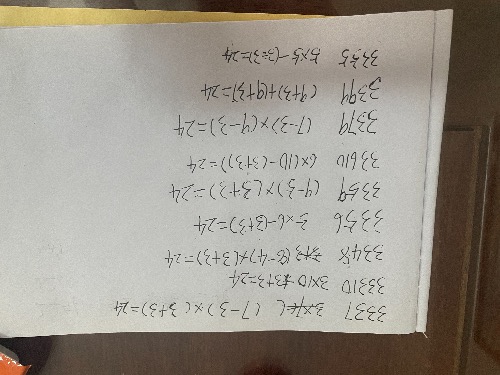 3337 (7-3)×(3+3)=24
33310 3×10-3+3=24
3348 (8-4)×(3+3)=24
3356 5×6-(3+3)=24
3359 (9-5)×(3+3)=24
33610 6×(10-(3+3))=24
3379 (7-3)×(9-3)=24
3399 (9+3)+(9+3)=24
3355 5×5-(3÷3)=24